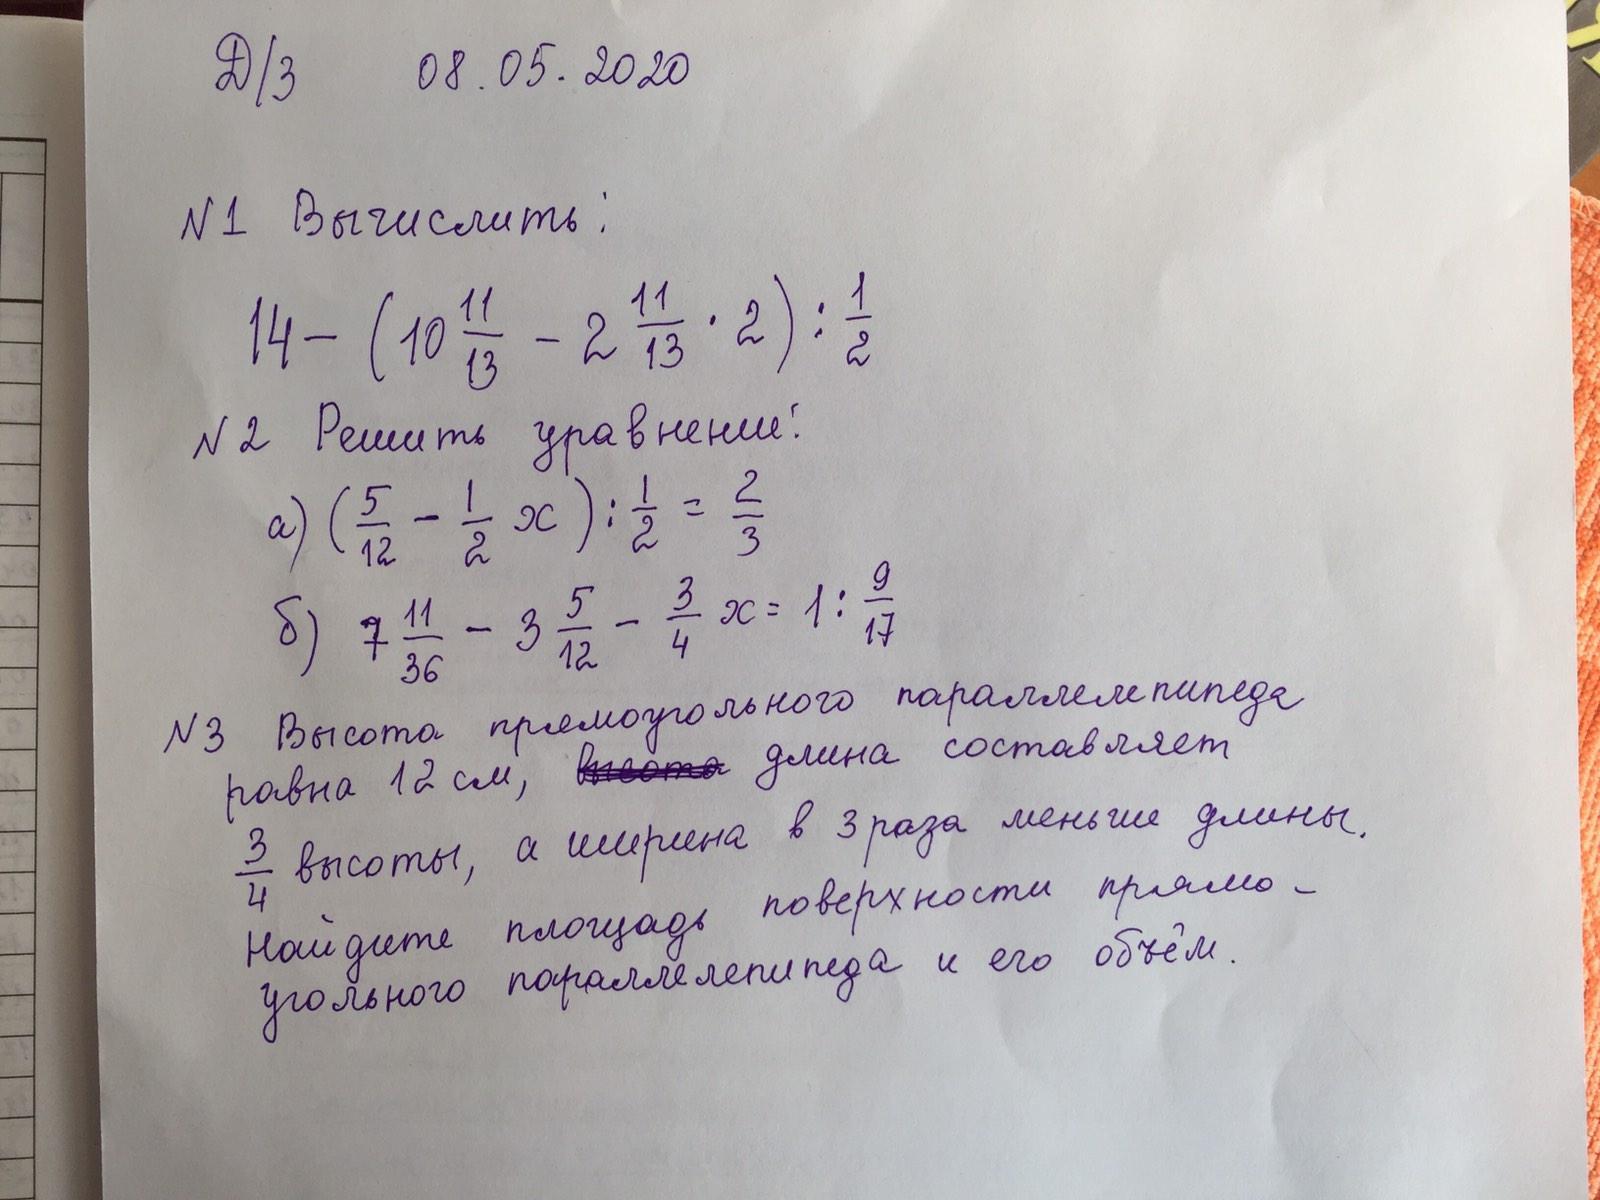 Д/З 08.05.2020
N1 Вычислить:
14 - (10 11/13 - 2 11/13 · 2) : 1/2
N2 Решить уравнение:
а) (5/12 - 1/2 x) : 1/2 = 2/3
б) 7 11/36 - 3 5/12 - 3/4 x = 1 : 9/17
N3 Высота прямоугольного параллелепипеда
равна 12 см, высота длина составляет
3/4 высоты, а ширина в 3 раза меньше длины.
Найдите площадь поверхности прямо-
угольного параллелепипеда и его объём.